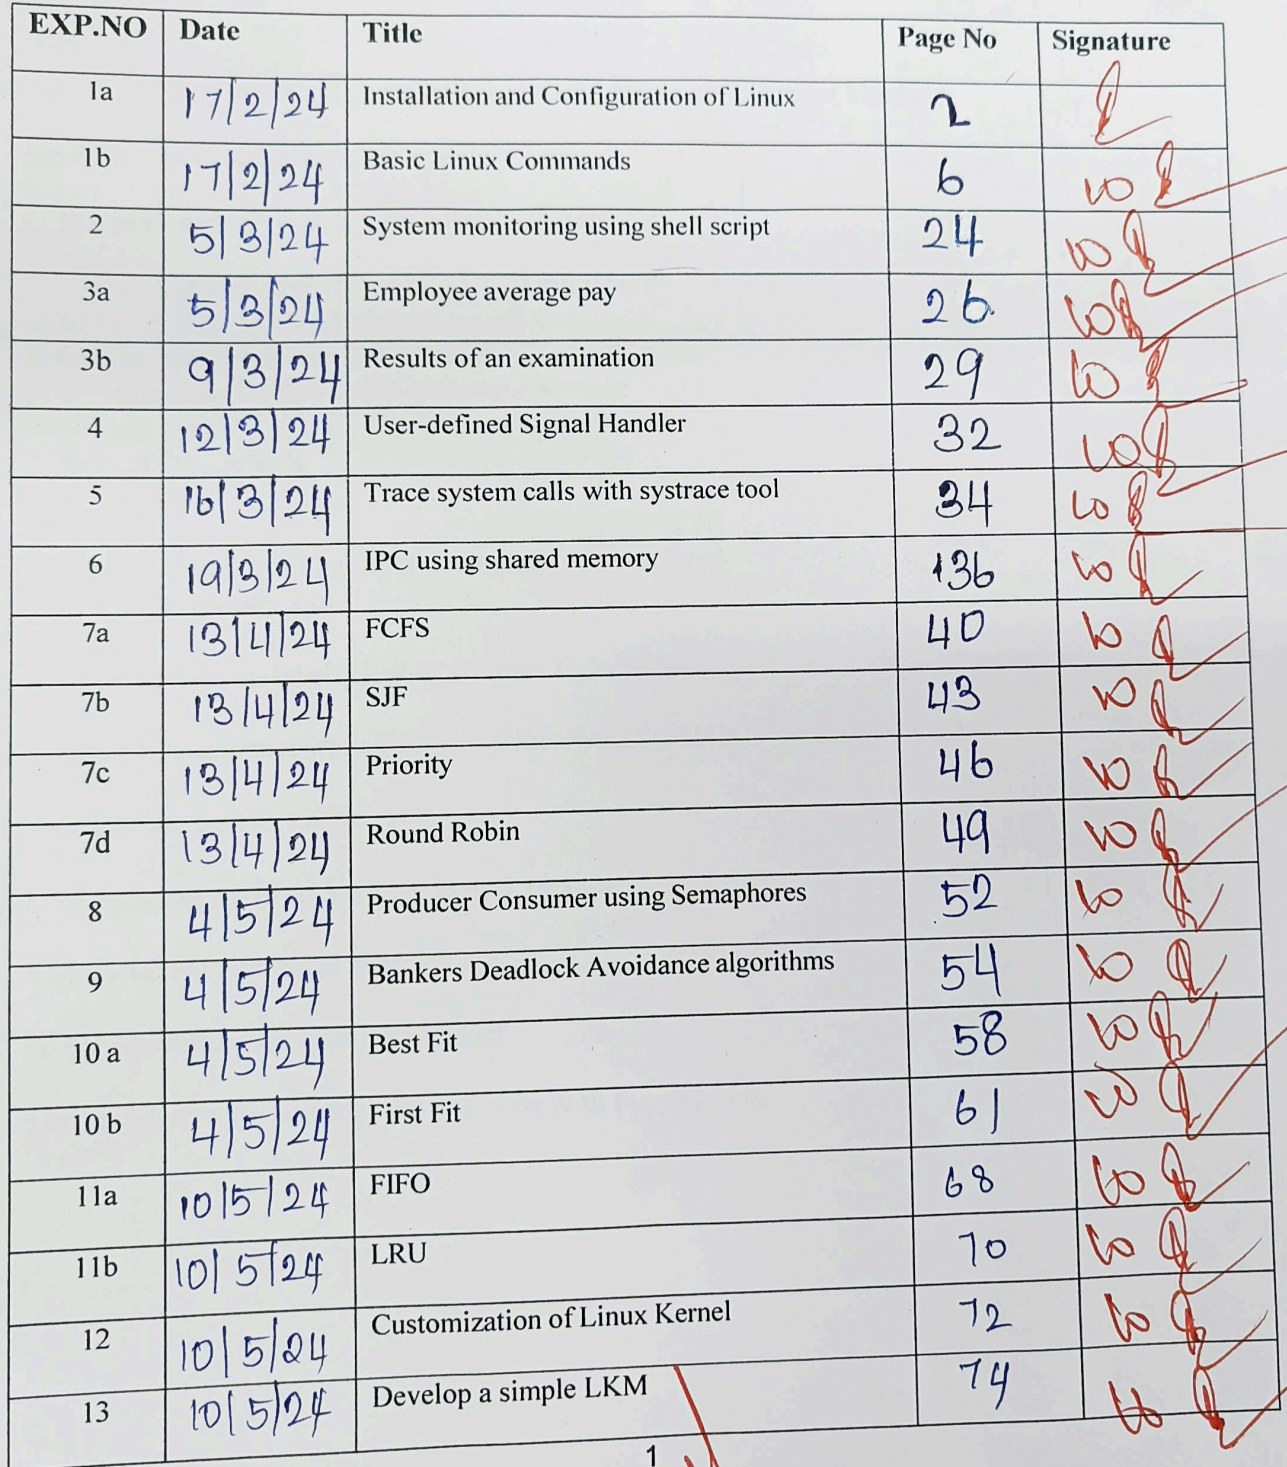 EXP.NO Date Title Page No Signature
1a 17/2/24 Installation and Configuration of Linux 2
1b 17/2/24 Basic Linux Commands 6 10
2 5/3/24 System monitoring using shell script 24 10
3a 5/3/24 Employee average pay 26 10
3b 9/3/24 Results of an examination 29 10
4 12/3/24 User-defined Signal Handler 32 10
5 16/3/24 Trace system calls with systrace tool 34 10
6 19/3/24 IPC using shared memory 136 10
7a 13/4/24 FCFS 40 10
7b 13/4/24 SJF 43 10
7c 13/4/24 Priority 46 10
7d 13/4/24 Round Robin 49 10
8 4/5/24 Producer Consumer using Semaphores 52 10
9 4/5/24 Bankers Deadlock Avoidance algorithms 54 10
10 a 4/5/24 Best Fit 58 10
10 b 4/5/24 First Fit 61 10
11a 10/5/24 FIFO 68 10
11b 10/5/24 LRU 70 10
12 10/5/24 Customization of Linux Kernel 72 10
13 10/5/24 Develop a simple LKM 74 10
1